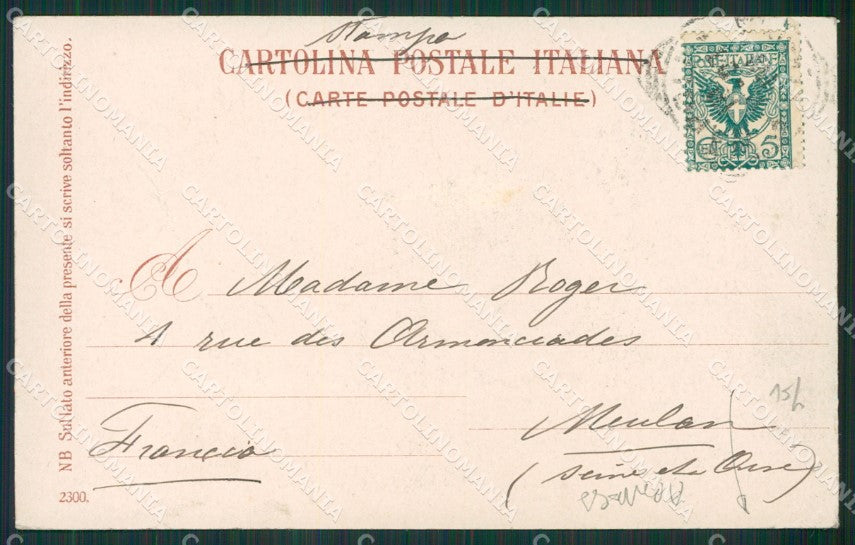 Stampe
CARTOLINA POSTALE ITALIANA
(CARTE POSTALE D'ITALIE)
POSTE ITALIANE
CENT. 5
NB Sul lato anteriore della presente si scrive soltanto l'indirizzo.
A Madame Roger
1 rue des Armonciades
Francia
Meulan
(Seine et Oise)
15/
2300.
CARTOLINOMANIA